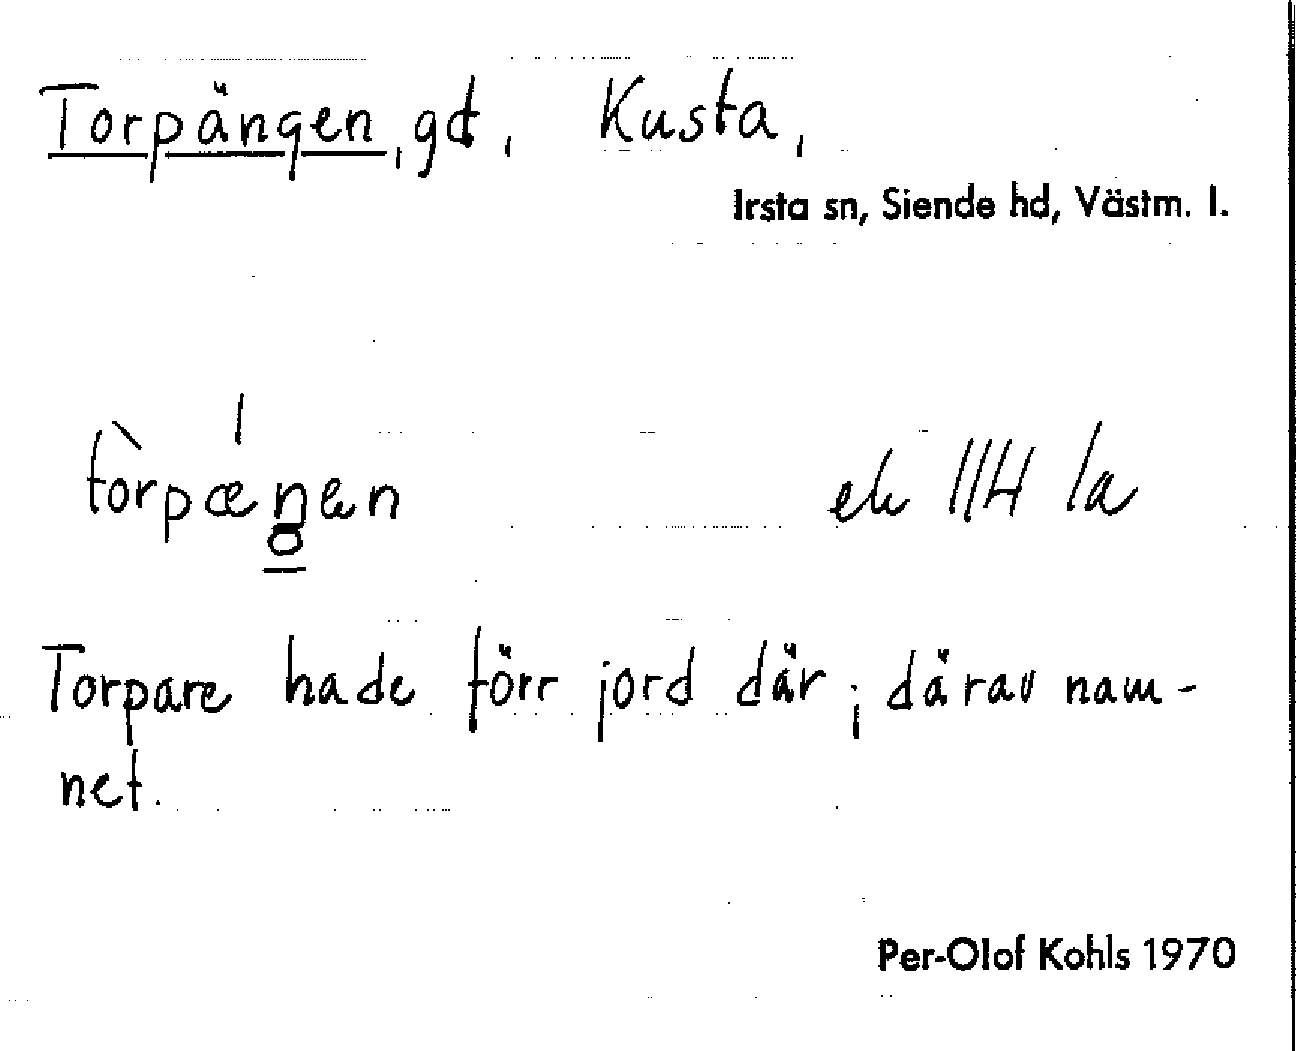 Torpängen, gd, Kusta,
Irsta sn, Siende hd, Västm. l.
tòrpæŋən
ek 114 1a
Torpare hade förr jord där; därav nam-
net.
Per-Olof Kohls 1970